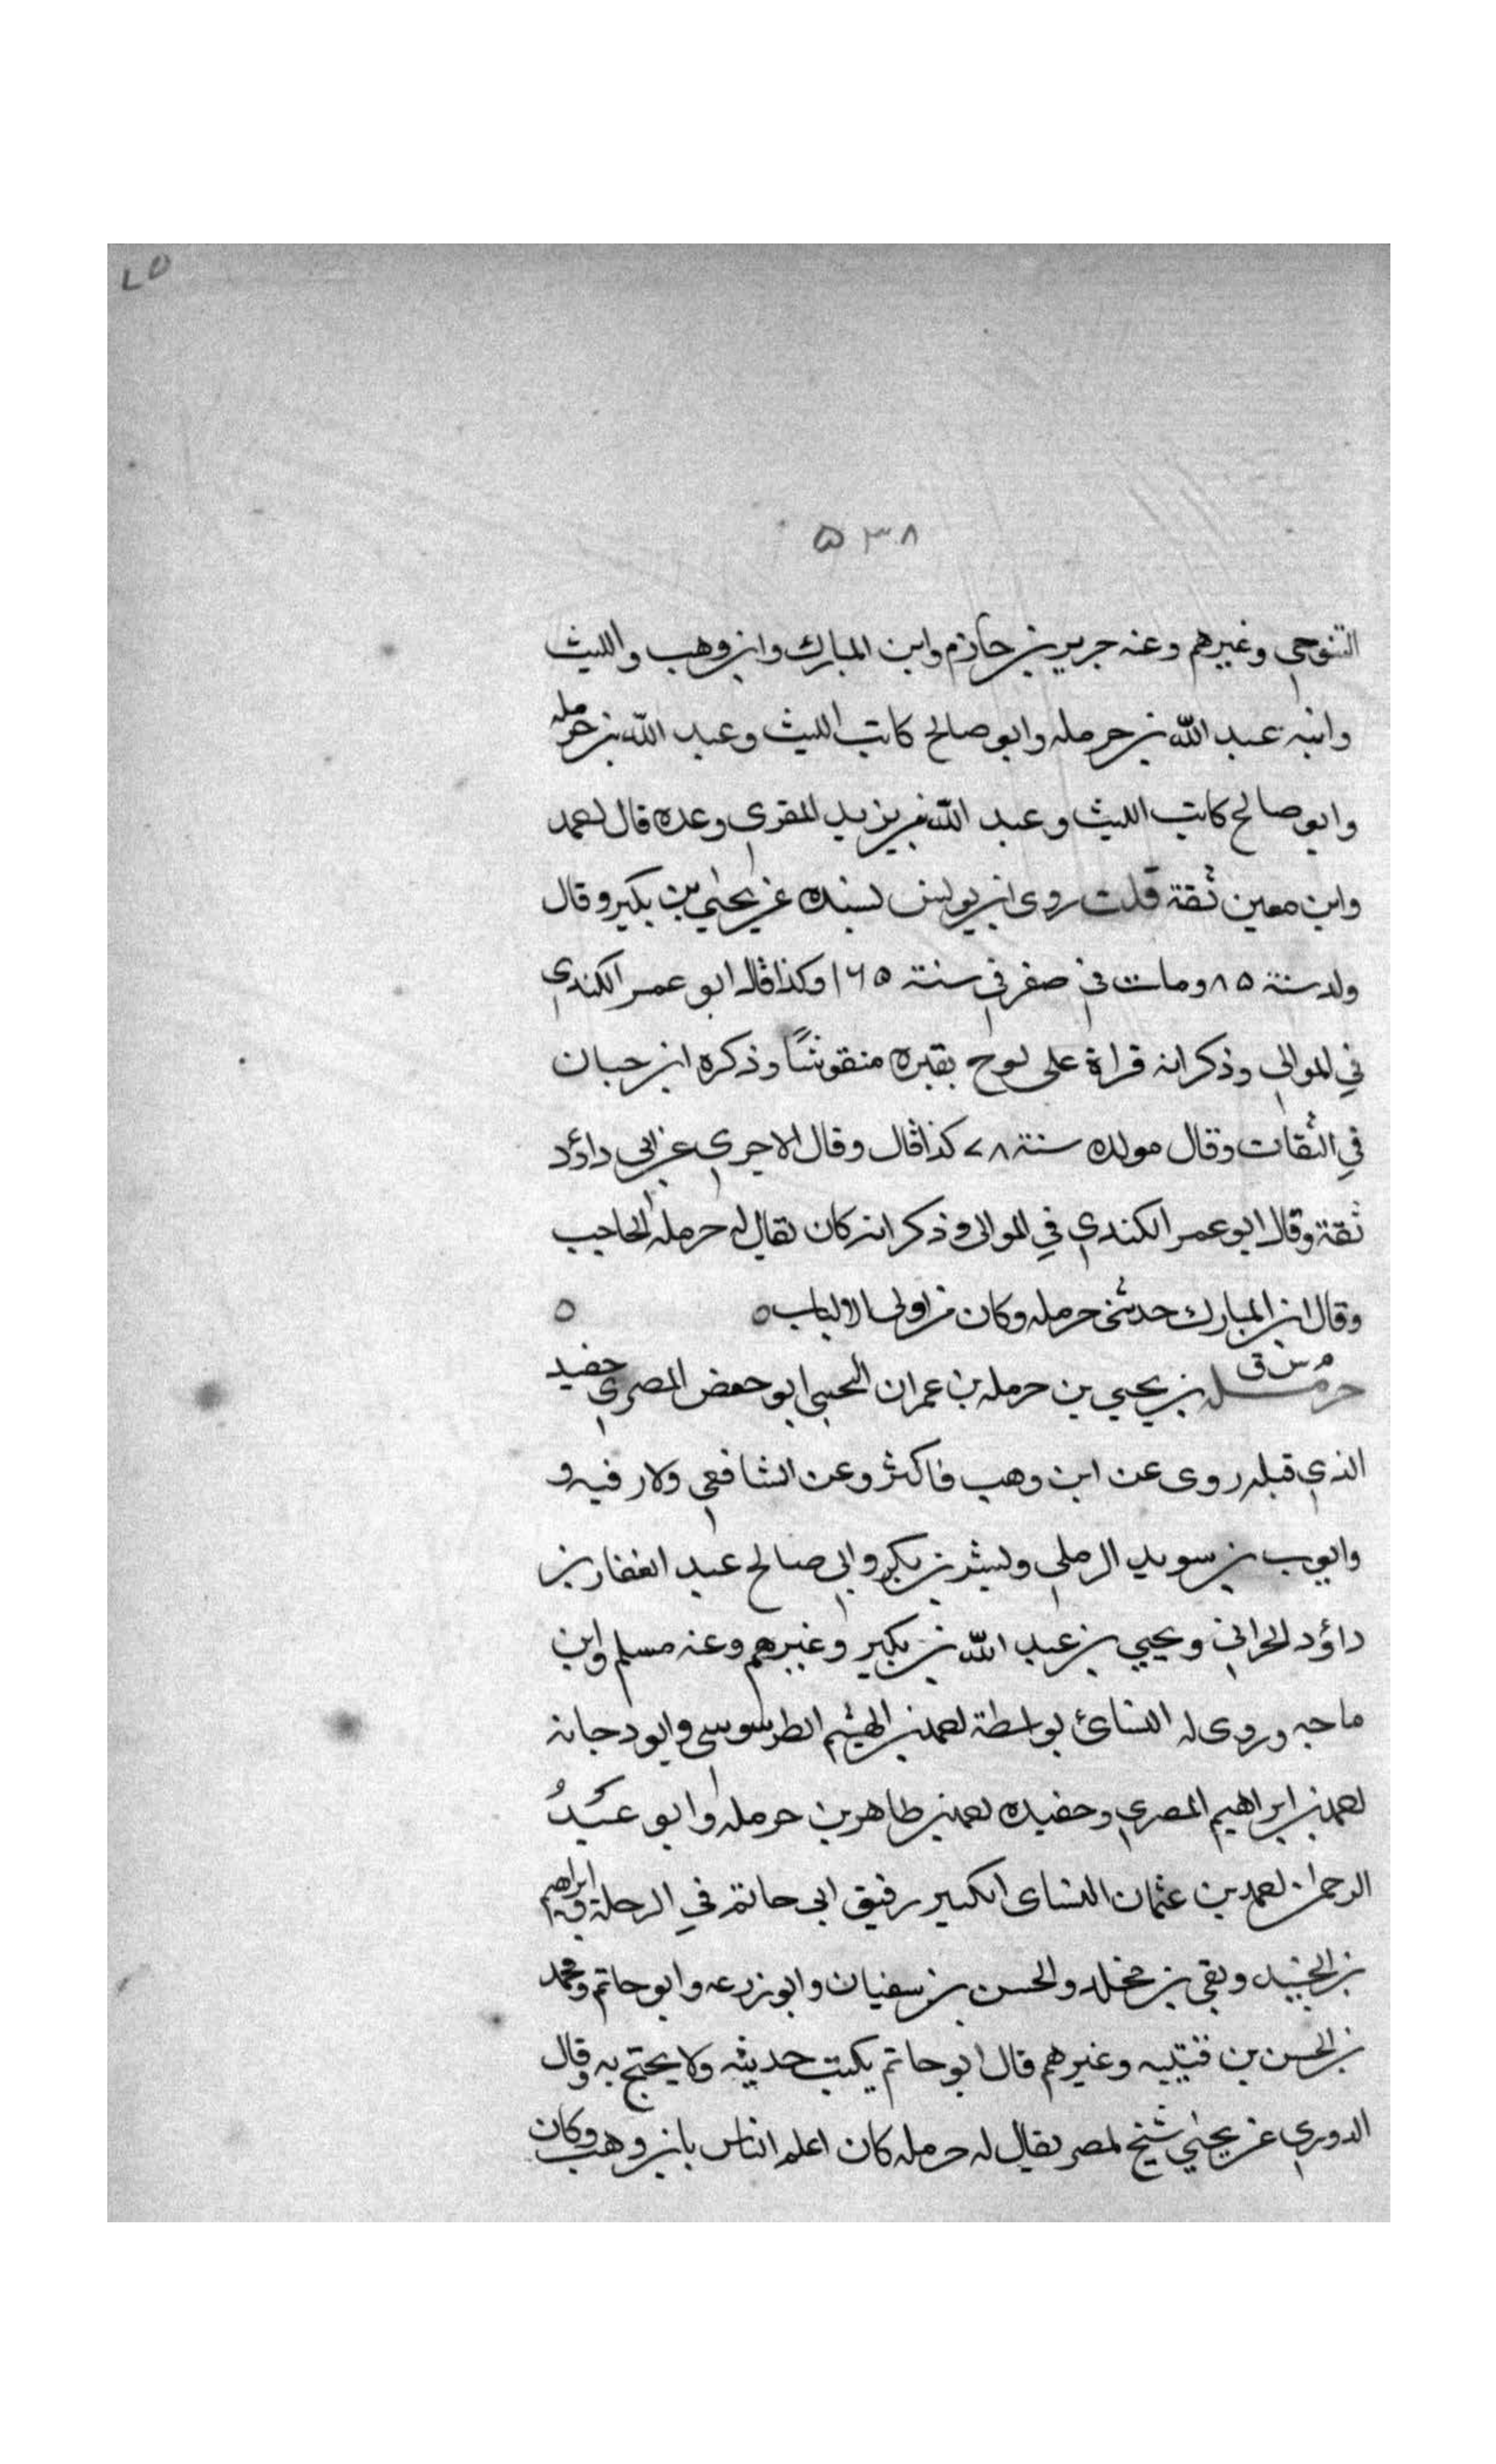 ٥٣٨
التنوجي وغيرهم وعنه جرير بن حازم وابن المبارك وابن وهب والليث
وابنه عبد الله بن حرمله وابو صالح كاتب الليث وعبد الله بن حرمله
وابو صالح كاتب الليث وعبد الله بن يزيد المقري وعده قال احمد
وابن معين ثقة قلت روى ابن يونس بسنده عن يحيي بن بكير وقال
ولد سنة ٨٥ ومات في صفر في سنة ١٦٥ وكذا قاله ابو عمر الكندي
في الموالي وذكر انه قراة على لوح بقبره منقوشًا وذكره ابن حبان
في الثقات وقال مولده سنة ٧٨ كذا قال وقال الاجري عن ابي داؤد
ثقة وقال ابو عمر الكندي في الموالى وذكر انه كان يقال له حرمله الحاجب
وقال ابن المبارك حدثني حرمله وكان من اولى الالباب ٥ ٥
م س ق
حرمله بن يحيي بن حرمله بن عمران التجيبي ابو حفص المصري حفيد
الذي قبله روى عن ابن وهب فاكثر وعن الشافعي ولازفيه و
وايوب بن سويد الرملي وبشر بن بكر وابي صالح عبد الغفار بن
داؤد الحراني ويحيي بن عبد الله بن بكير وغيرهم وعنه مسلم وابن
ماجه وروى له النسائ بواسطة احمد بن الهيثم الطرسوسي وابو دجانه
احمد بن ابراهيم المصري وحفيده احمد بن طاهر بن حرمله وابو عبد
الرحمن احمد بن عثمان النساى الكبير رفيق ابى حاتم في الرحلة وابراهيم
بن الجنيد وبقي بن مخلد والحسن بن سفيان وابو زرعه وابو حاتم ومحمد
بن الحسن بن قتيبه وغيرهم قال ابو حاتم يكتب حديثه ولا يحتج به وقال
الدوري عن يحيي شيخ لمصر يقال له حرمله كان اعلم الناس بابن وهب وكان